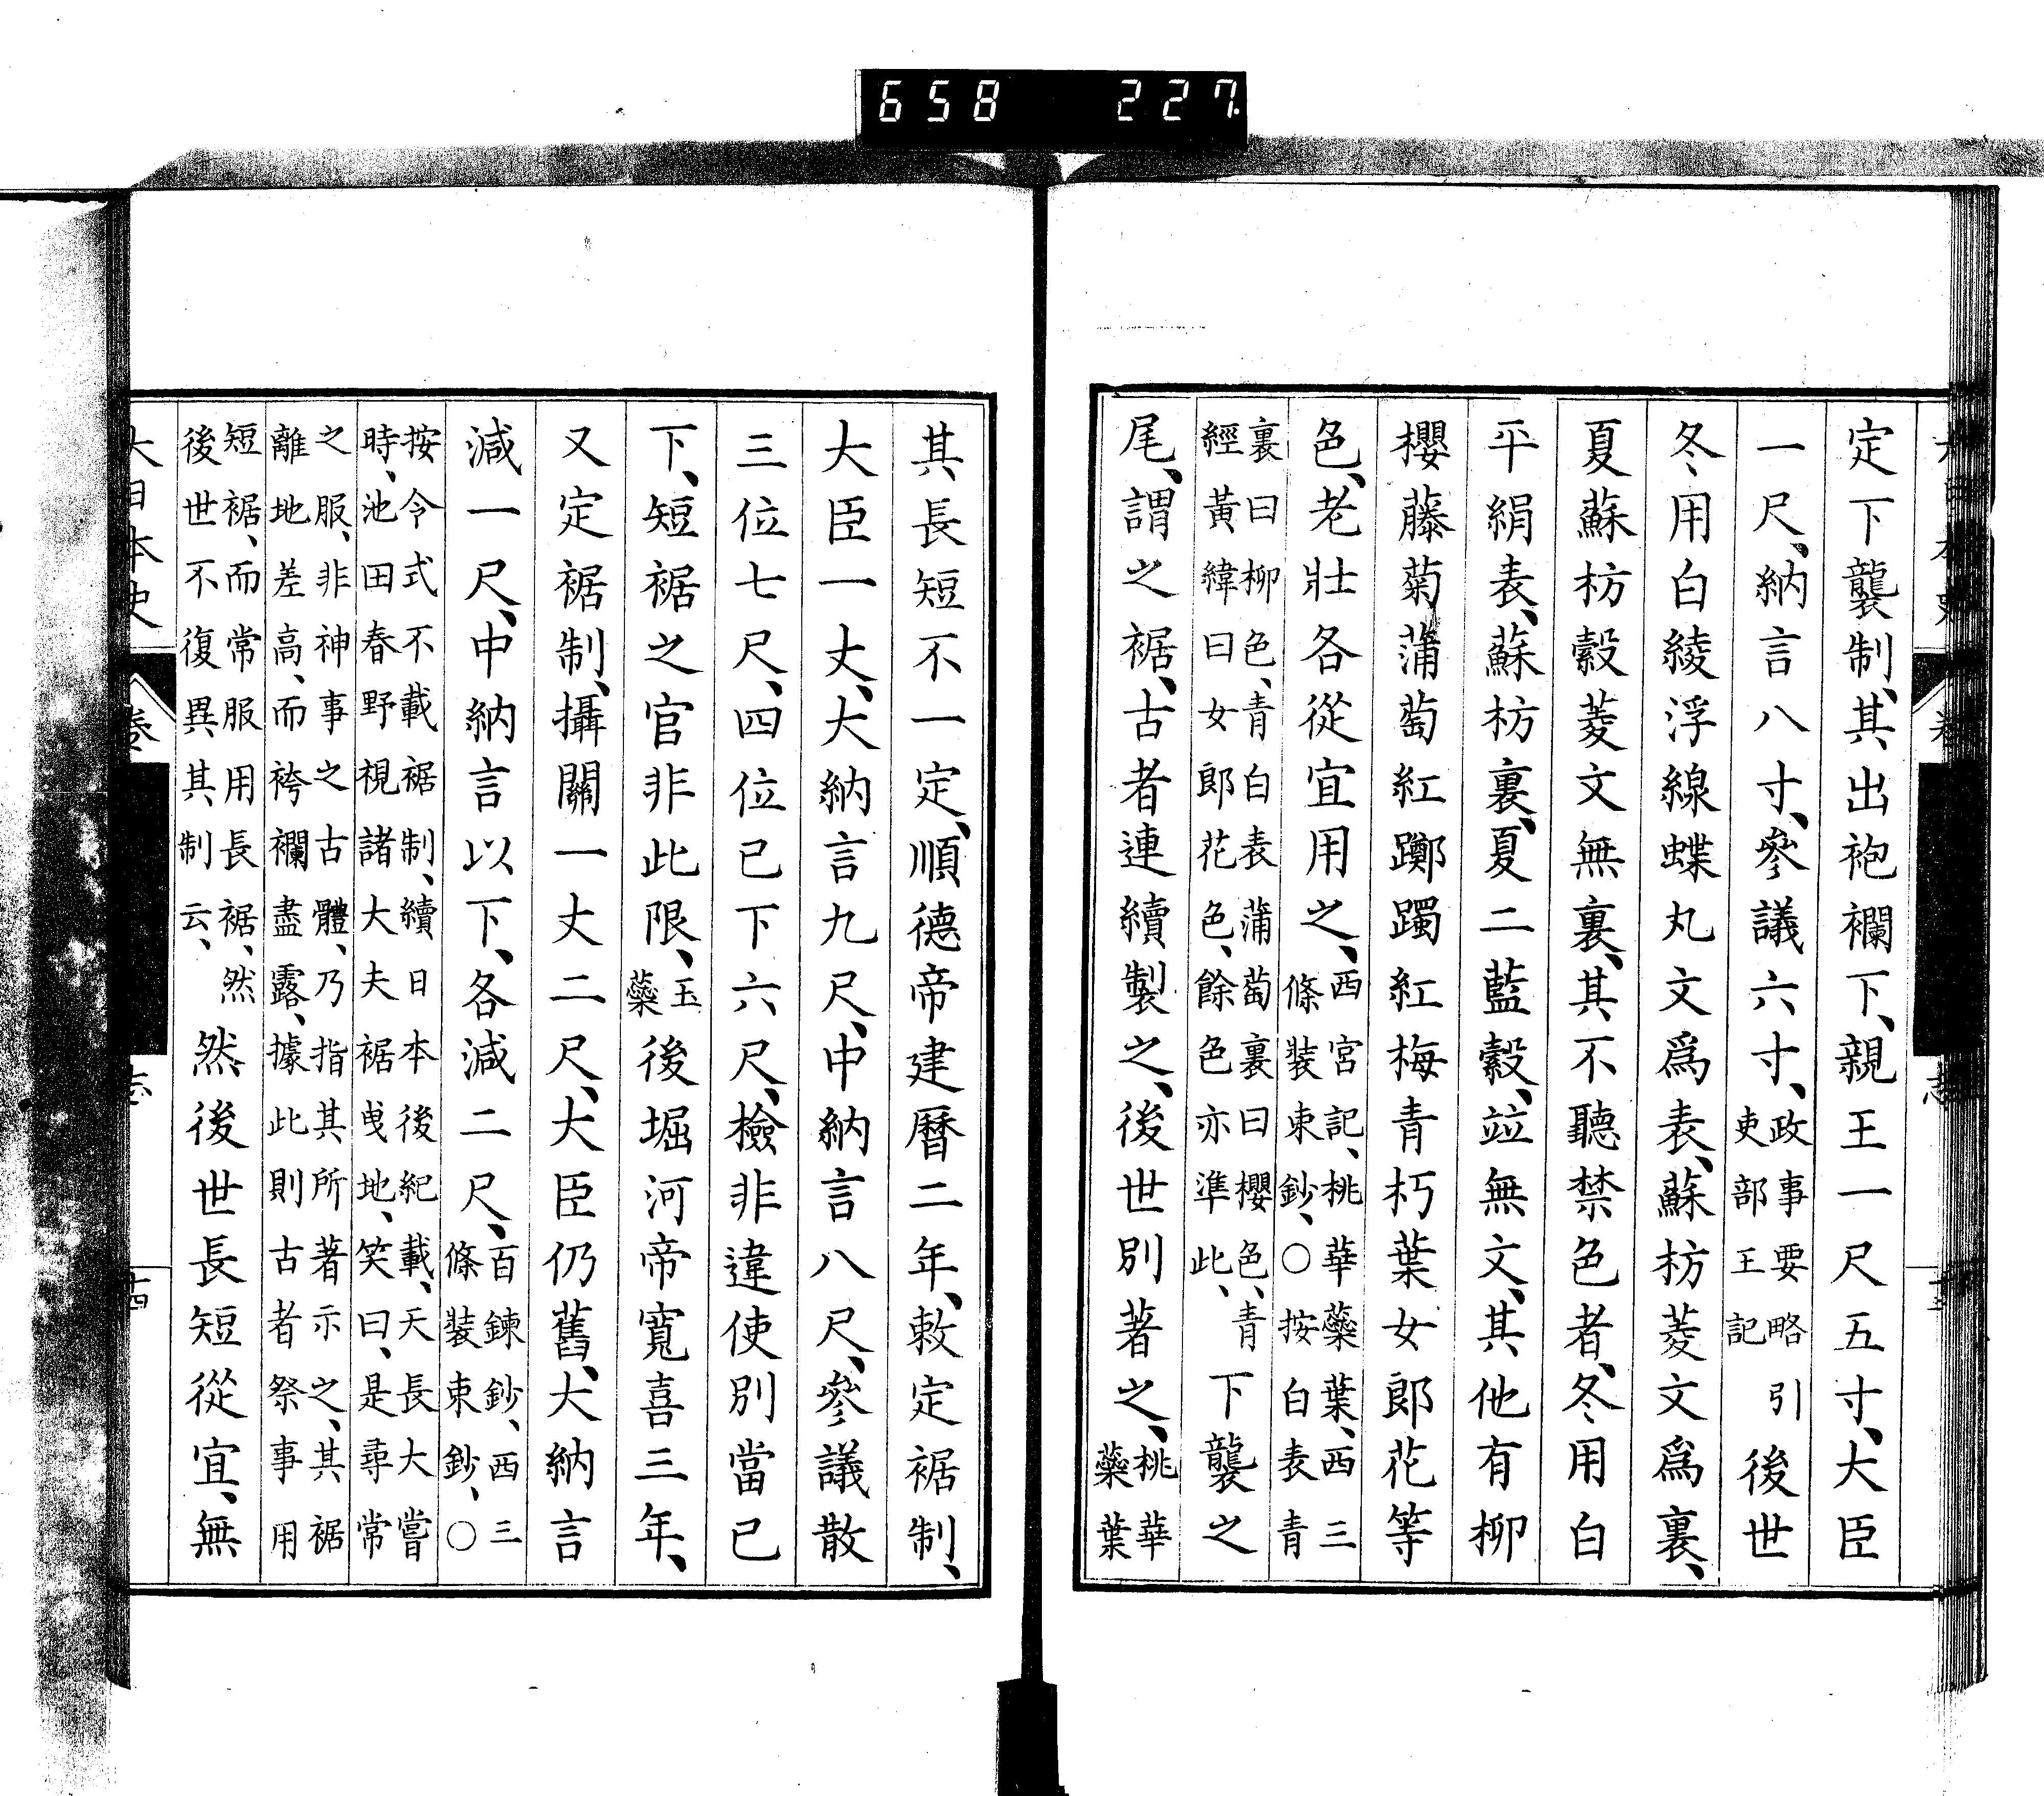 658 227
定下襲制、其出袍襴下、親王一尺五寸、大臣
一尺、納言八寸、參議六寸、政事要略引吏部王記後世
冬用白綾浮線蝶丸文爲表、蘇枋菱文爲裏、
夏蘇枋縠菱文無裏、其不聽禁色者、冬用白
平絹表、蘇枋裏、夏二藍縠、竝無文、其他有柳
櫻藤菊蒲萄紅躑躅紅梅青朽葉女郎花等
色、老壯各從宜用之、西宮記、桃華蘂葉、西三條裝束鈔、○按白表青
裏曰柳色、青白表蒲萄裏曰櫻色、青經黃緯曰女郎花色、餘色亦準此、下襲之
尾、謂之裾、古者連續製之、後世別著之、桃華蘂葉
其長短不一定、順德帝建曆二年、敕定裾制、
大臣一丈、大納言九尺、中納言八尺、參議散
三位七尺、四位已下六尺、檢非違使別當已
下、短裾之官非此限、玉蘂後堀河帝寬喜三年、
又定裾制、攝關一丈二尺、大臣仍舊、大納言
減一尺、中納言以下、各減二尺、百鍊鈔、西三條裝束鈔、○
按令式不載裾制、續日本後紀載、天長大嘗時、池田春野視諸大夫裾曳地、笑曰、是尋常
之服、非神事之古體、乃指其所著示之、其裾離地差高、而袴襴盡露、據此則古者祭事用
短裾、而常服用長裾、然後世不復異其制云、然後世長短從宜、無
大日本史 卷 志 十四